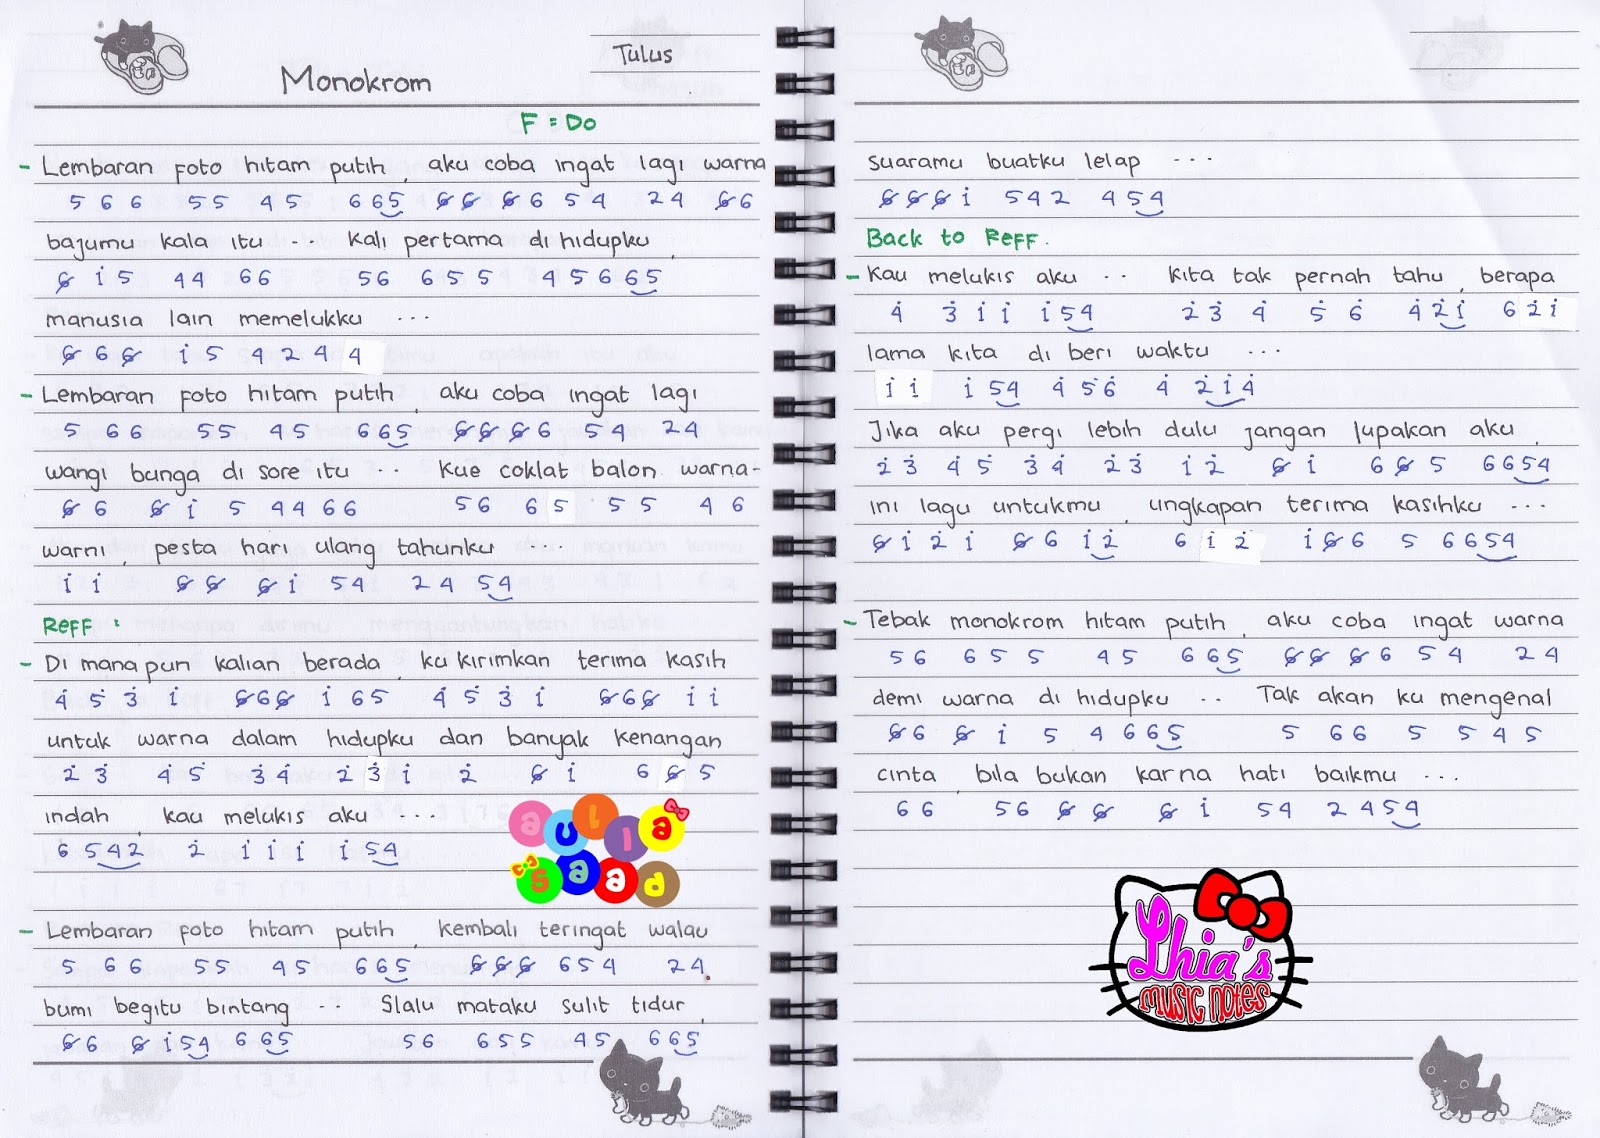 Tulus
Monokrom
F = Do
- Lembaran foto hitam putih, aku coba ingat lagi warna
5 6 6 5 5 4 5 6 6 5 6̸ 6̸ 6̸ 6 5 4 2 4 6̸ 6
bajumu kala itu ... kali pertama di hidupku,
6̸ 1̇ 5 4 4 6 6 5 6 6 5 5 4 5 6 6 5
manusia lain memelukku ...
6̸ 6 6̸ 1̇ 5 4 2 4 4
- Lembaran foto hitam putih, aku coba ingat lagi
5 6 6 5 5 4 5 6 6 5 6̸ 6̸ 6̸ 6 5 4 2 4
wangi bunga di sore itu .. Kue coklat balon warna-
6̸ 6 6̸ 1̇ 5 4 4 6 6 5 6 6 5 5 5 4 6
warni, pesta hari ulang tahunku ....
1̇ 1̇ 6̸ 6̸ 6̸ 1̇ 5 4 2 4 5 4
Reff :
- Di mana pun kalian berada, ku kirimkan terima kasih
4̇ 5̇ 3̇ 1̇ 6̸ 6 6̸ 1̇ 6 5 4̇ 5̇ 3̇ 1̇ 6̸ 6 6̸ 1̇ 1̇
untuk warna dalam hidupku dan banyak kenangan
2̇ 3̇ 4̇ 5̇ 3̇ 4̇ 2̇ 3̇ 1̇ 2̇ 6̸ 1̇ 6 6̸ 5
indah, kau melukis aku ...
6 5 4 2 2̇ 1̇ 1̇ 1̇ 1̇ 5 4
aulia
saad
- Lembaran foto hitam putih, kembali teringat walau
5 6 6 5 5 4 5 6 6 5 6̸ 6̸ 6̸ 6 5 4 2 4
bumi begitu bintang ... Slalu mataku sulit tidur,
6̸ 6 6̸ 1̇ 5 4 6 6 5 5 6 6 5 5 4 5 6 6 5
suaramu buatku lelap ...
6̸ 6̸ 6̸ 1̇ 5 4 2 4 5 4
Back to Reff.
- Kau melukis aku .. kita tak pernah tahu, berapa
4̇ 3̇ 1̇ 1̇ 1̇ 5 4 2̇ 3̇ 4̇ 5̇ 6̇ 4̇ 2̇ 1̇ 6 2̇ 1̇
lama kita di beri waktu ...
1̇ 1̇ 1̇ 5 4 4̇ 5̇ 6̇ 4̇ 2̇ 1̇ 4̇
Jika aku pergi lebih dulu jangan lupakan aku,
2̇ 3̇ 4̇ 5̇ 3̇ 4̇ 2̇ 3̇ 1̇ 2̇ 6̸ 1̇ 6 6̸ 5 6 6 5 4
ini lagu untukmu, ungkapan terima kasihku ...
6̸ 1̇ 2̇ 1̇ 6̸ 6 1̇ 2̇ 6 1̇ 2̇ 1̇ 6̸ 6 5 6 6 5 4
- Tebak monokrom hitam putih, aku coba ingat warna
5 6 6 5 5 4 5 6 6 5 6̸ 6̸ 6̸ 6 5 4 2 4
demi warna di hidupku .. Tak akan ku mengenal
6̸ 6 6̸ 1̇ 5 4 6 6 5 5 6 6 5 5 4 5
cinta, bila bukan karna hati baikmu ...
6 6 5 6 6̸ 6̸ 6̸ 1̇ 5 4 2 4 5 4
Lhia's
MUSIC NOTES